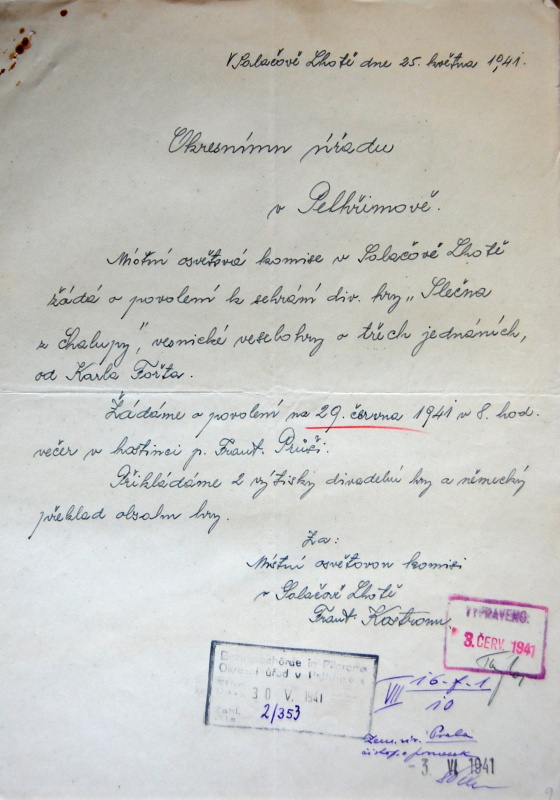 V Salačově Lhotě dne 25. května 1941.
Okresnímu úřadu
v Pelhřimově.
Místní osvětová komise v Salačově Lhotě
žádá o povolení k sehrání div. hry „Slečna
z chalupy", vesnické veselohry o třech jednáních,
od Karla Fořta.
Žádáme o povolení na 29. června 1941 v 8 hod.
večer v hostinci p. Frant. Průši.
Přikládáme 2 výtisky divadelní hry a německý
překlad obsahu hry.
Za:
Místní osvětovou komisi
v Salačově Lhotě
Frant.
VYPRAVENO:
3. ČERV. 1941
Bezirksbehörde in
Okresní úřad v
30 V. 1941
2/353
VII 16-J-1
10
-3 VI 1941